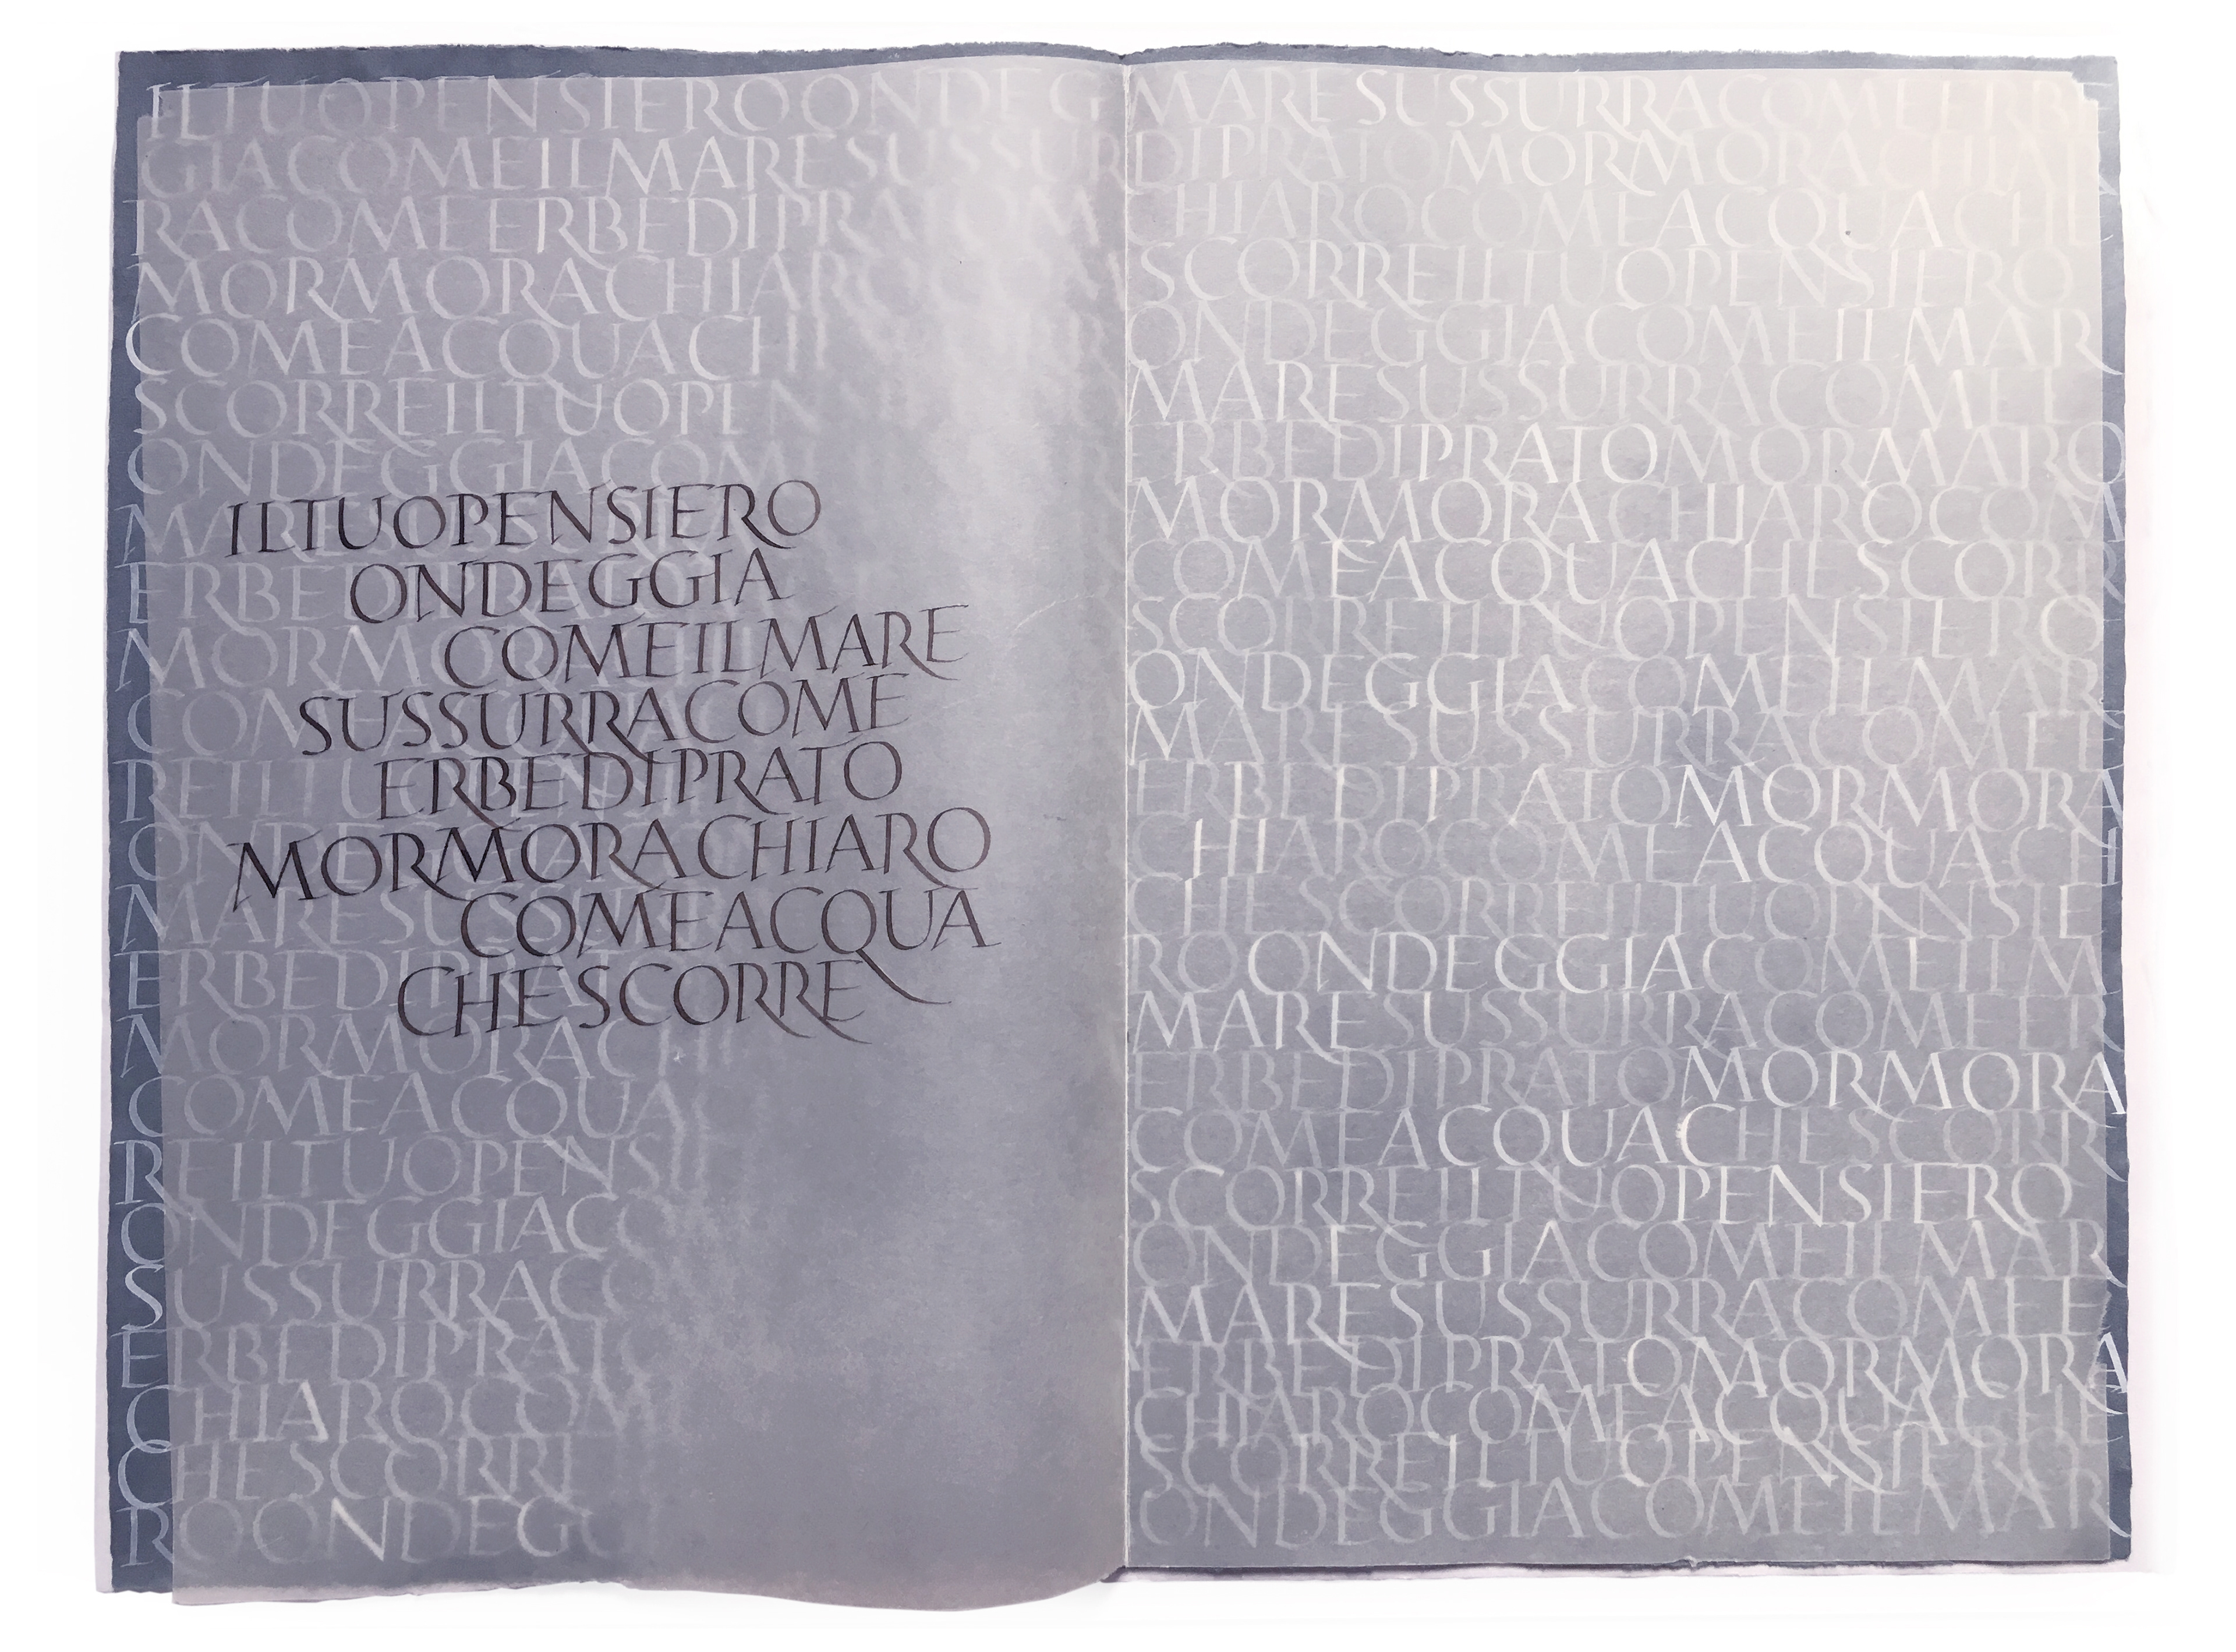 ILTUOPENSIEROONDEG
GIACOMEILMARESUSSUR
RACOMEERBEDIPRATOM
MORMORACHIARO
COMEACQUACH
SCORREILTUOPEN
ONDEGGIACOM
ILTUOPENSIERO
ONDEGGIA
COMEILMARE
SUSSURRACOME
ERBEDIPRATO
MORMORACHIARO
COMEACQUA
CHESCORRE
MORMORACHI
COMEACQUA
REILTUOPENSI
ONDEGGIACO
SUSSURRACO
ERBEDIPRATO
CHIAROCOM
CHESCORRE
ROONDEGG
MARESUSSURRACOMEERB
DIPRATOMORMORACHIA
CHIAROCOMEACQUACHE
SCORREILTUOPENSIERO
ONDEGGIACOMEILMAR
MARESUSSURRACOMEE
ERBEDIPRATOMORMARO
MORMORACHIAROCOM
COMEACQUACHESCORR
SCORREILTUOPENSIERO
ONDEGGIACOMEILMAR
MARESUSSURRACOMEE
ERBEDIPRATOMORMORA
CHIAROCOMEACQUACH
CHESCORREILTUOPENSIE
ROONDEGGIACOMEILM
MARESUSSURRACOMEER
ERBEDIPRATOMORMORA
COMEACQUACHESCORR
SCORREILTUOPENSIERO
ONDEGGIACOMEILMAR
MARESUSSURRACOMEE
ERBEDIPRATOMORMORA
CHIAROCOMEACQUACHE
SCORREILTUOPENSIERO
ONDEGGIACOMEILMAR